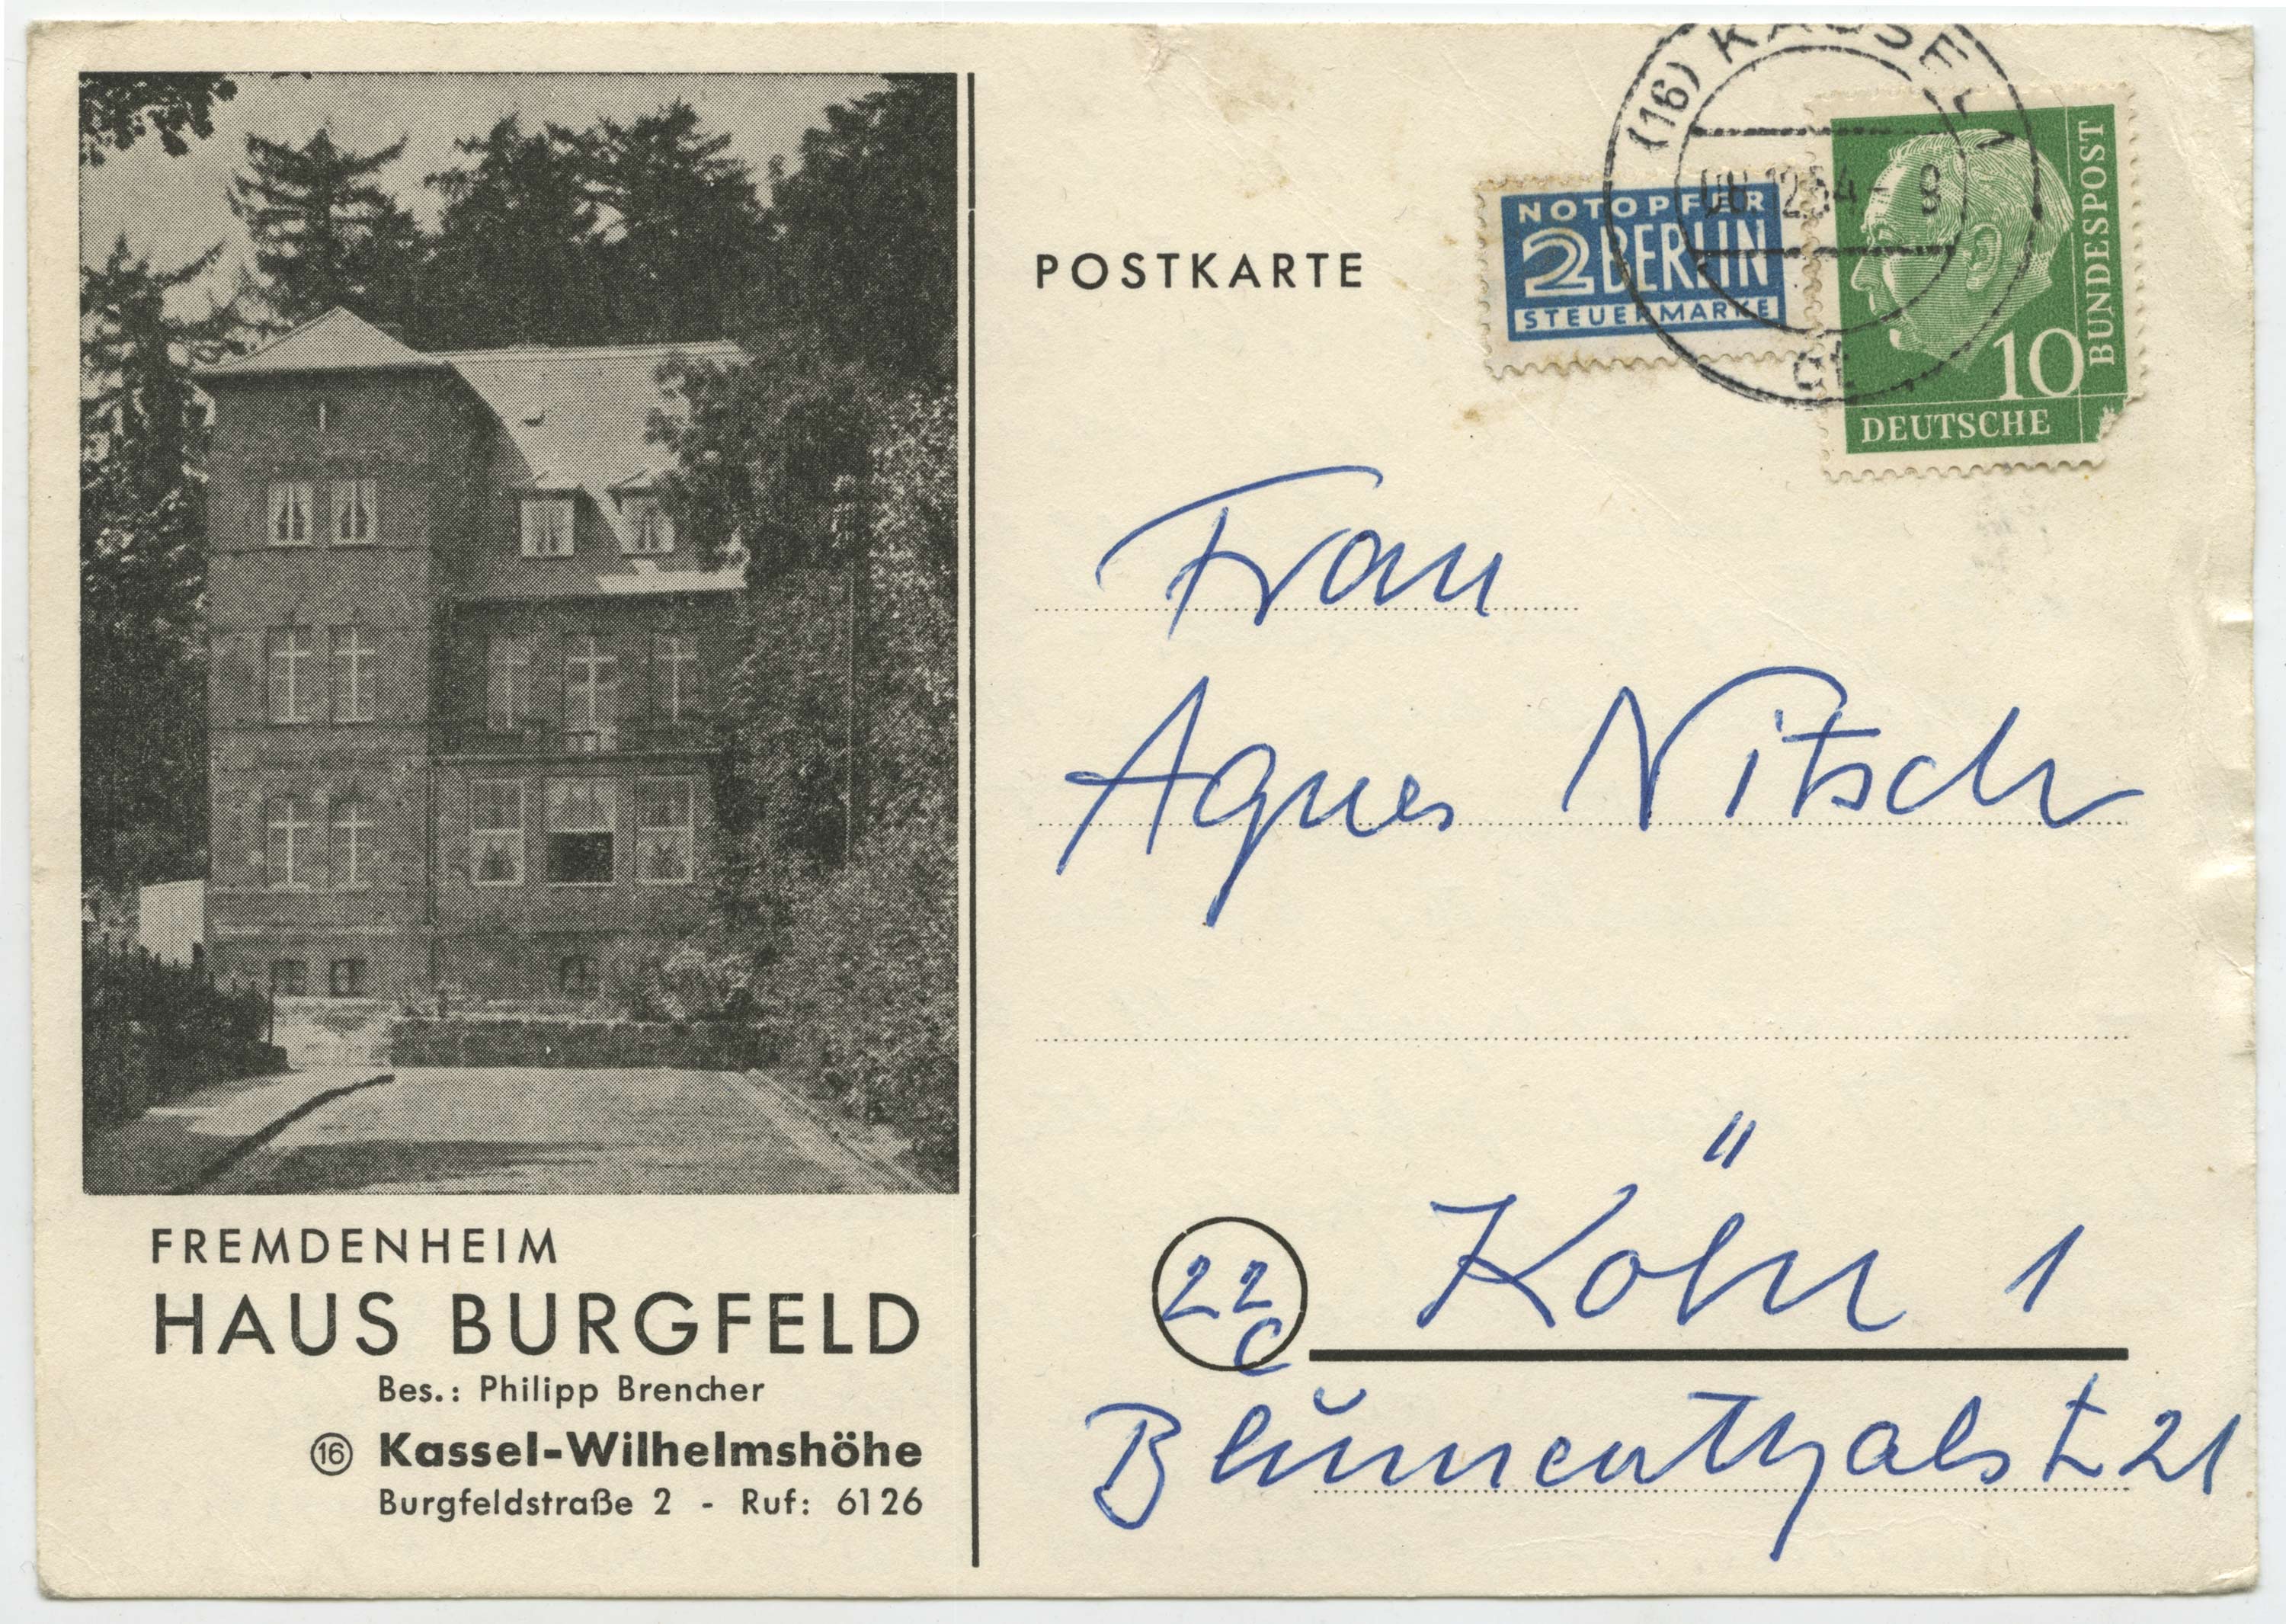 (16) KASSEL 1
12.54 - 8
NOTOPFER
2 BERLIN
STEUERMARKE
10
DEUTSCHE
BUNDESPOST
POSTKARTE
Frau
Agnes Nitsch
22c Köln 1
Blumenthalst 21
FREMDENHEIM
HAUS BURGFELD
Bes.: Philipp Brencher
16 Kassel-Wilhelmshöhe
Burgfeldstraße 2 - Ruf: 6126